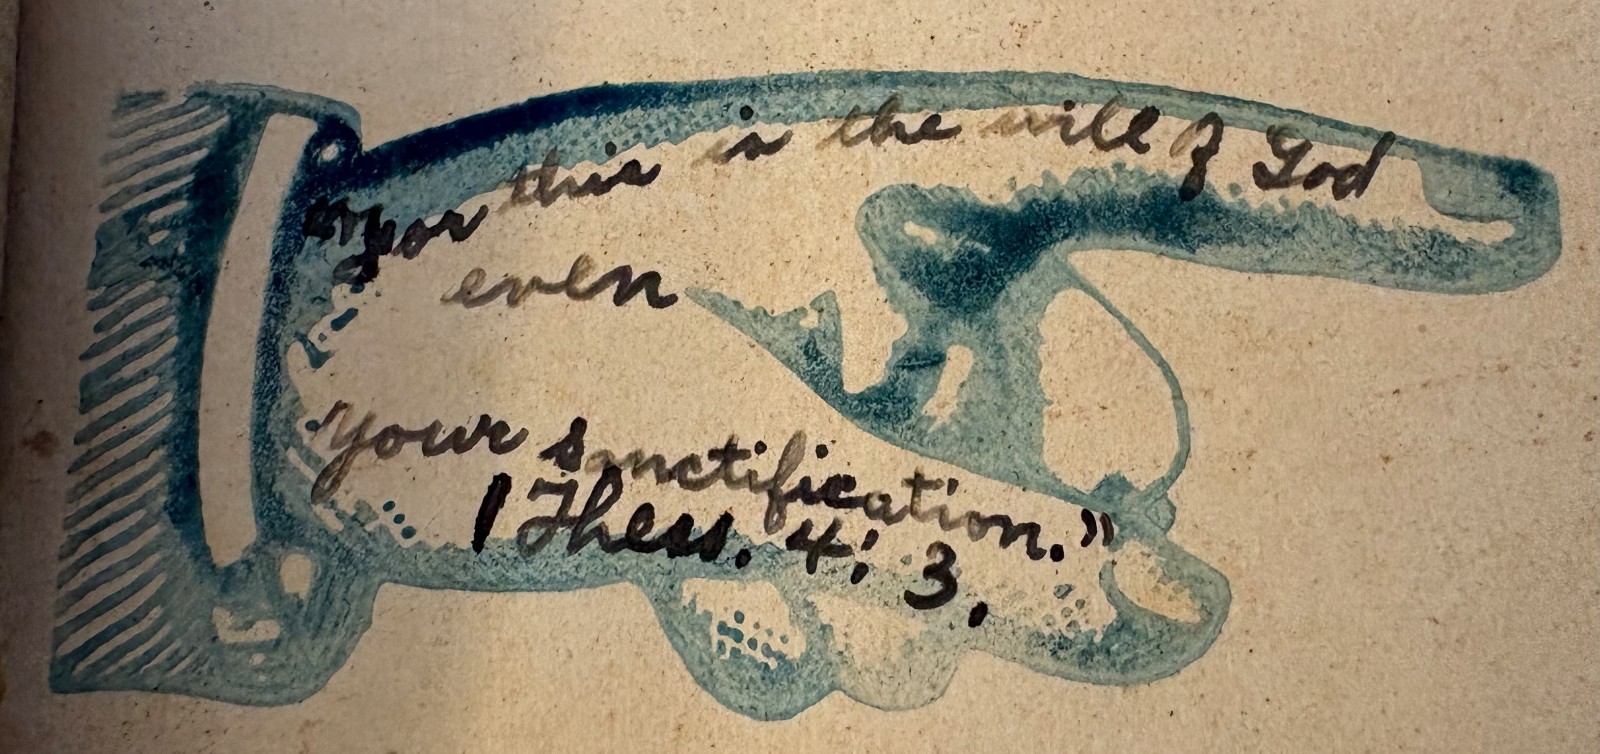 "For this is the will of God
even
your sanctification."
1 Thess. 4: 3,